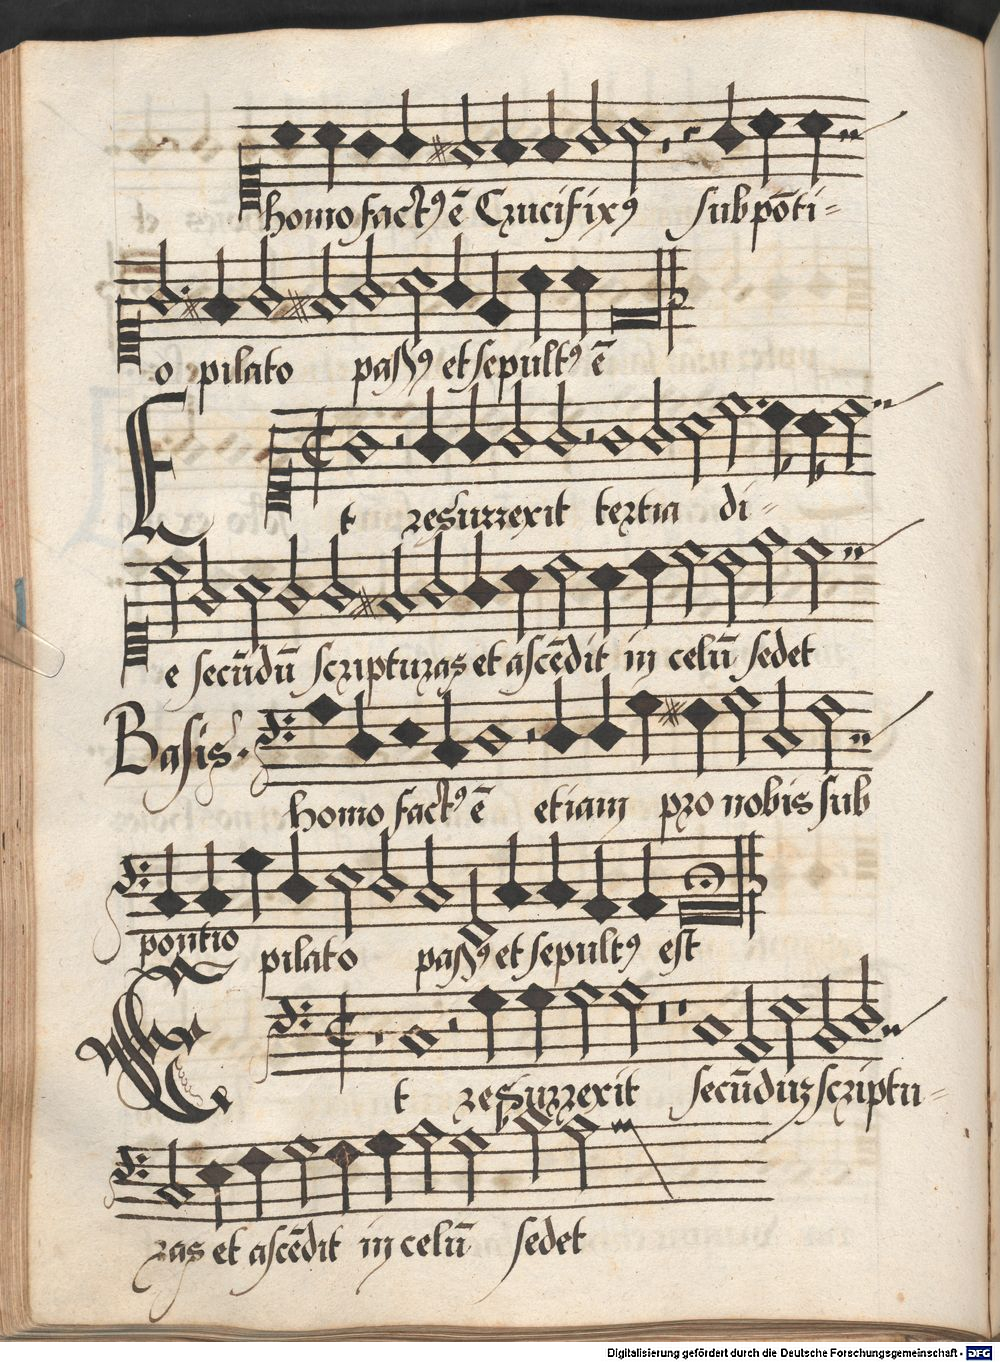 homo fact⁹ ē Crucifix⁹ sub pōti=
o pilato pass⁹ et sepult⁹ ē
Et resurrexit tertia di=
e secūdū scripturas et ascēdit in celū sedet
Basis.
homo fact⁹ ē etiam pro nobis sub
pontio pilato pass⁹ et sepult⁹ est
Et resurrexit secūduz scriptu=
ras et ascēdit in celū sedet
Digitalisierung gefördert durch die Deutsche Forschungsgemeinschaft - DFG